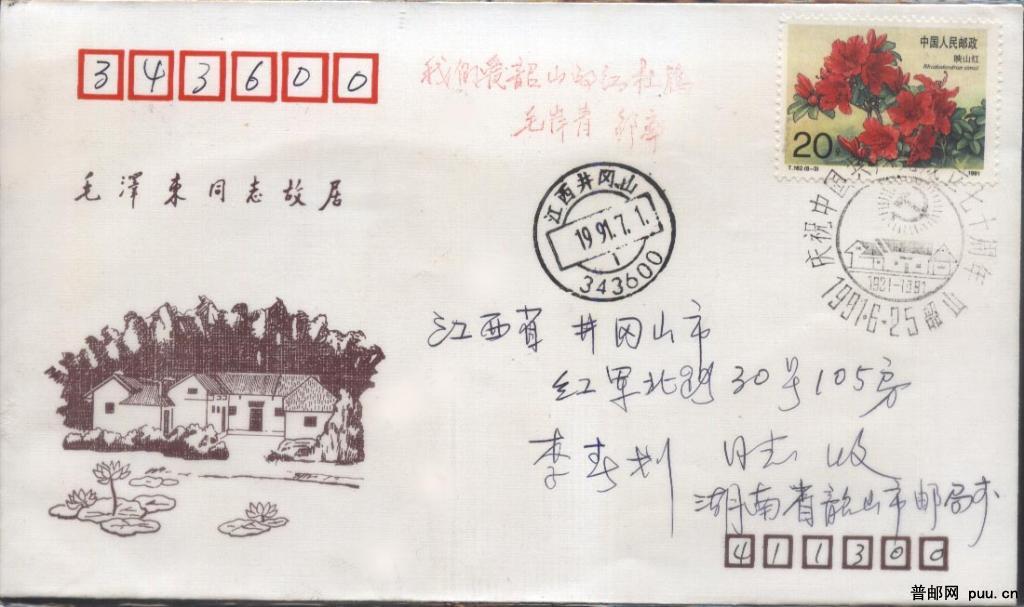 343600
我们爱韶山的红杜鹃
毛岸青 邵华
中国人民邮政
映山红
Rhododendron simsii
20分
T.162.(8-3)
1991
毛泽东同志故居
江西井冈山
1991.7.1.
1
343600
庆祝中国共产党成立七十周年
1921-1991
1991·6·25 韶山
江西省 井冈山市
红军北路30号105房
李春刬 同志 收
湖南省韶山市邮局寄
411300
普邮网 puu.cn